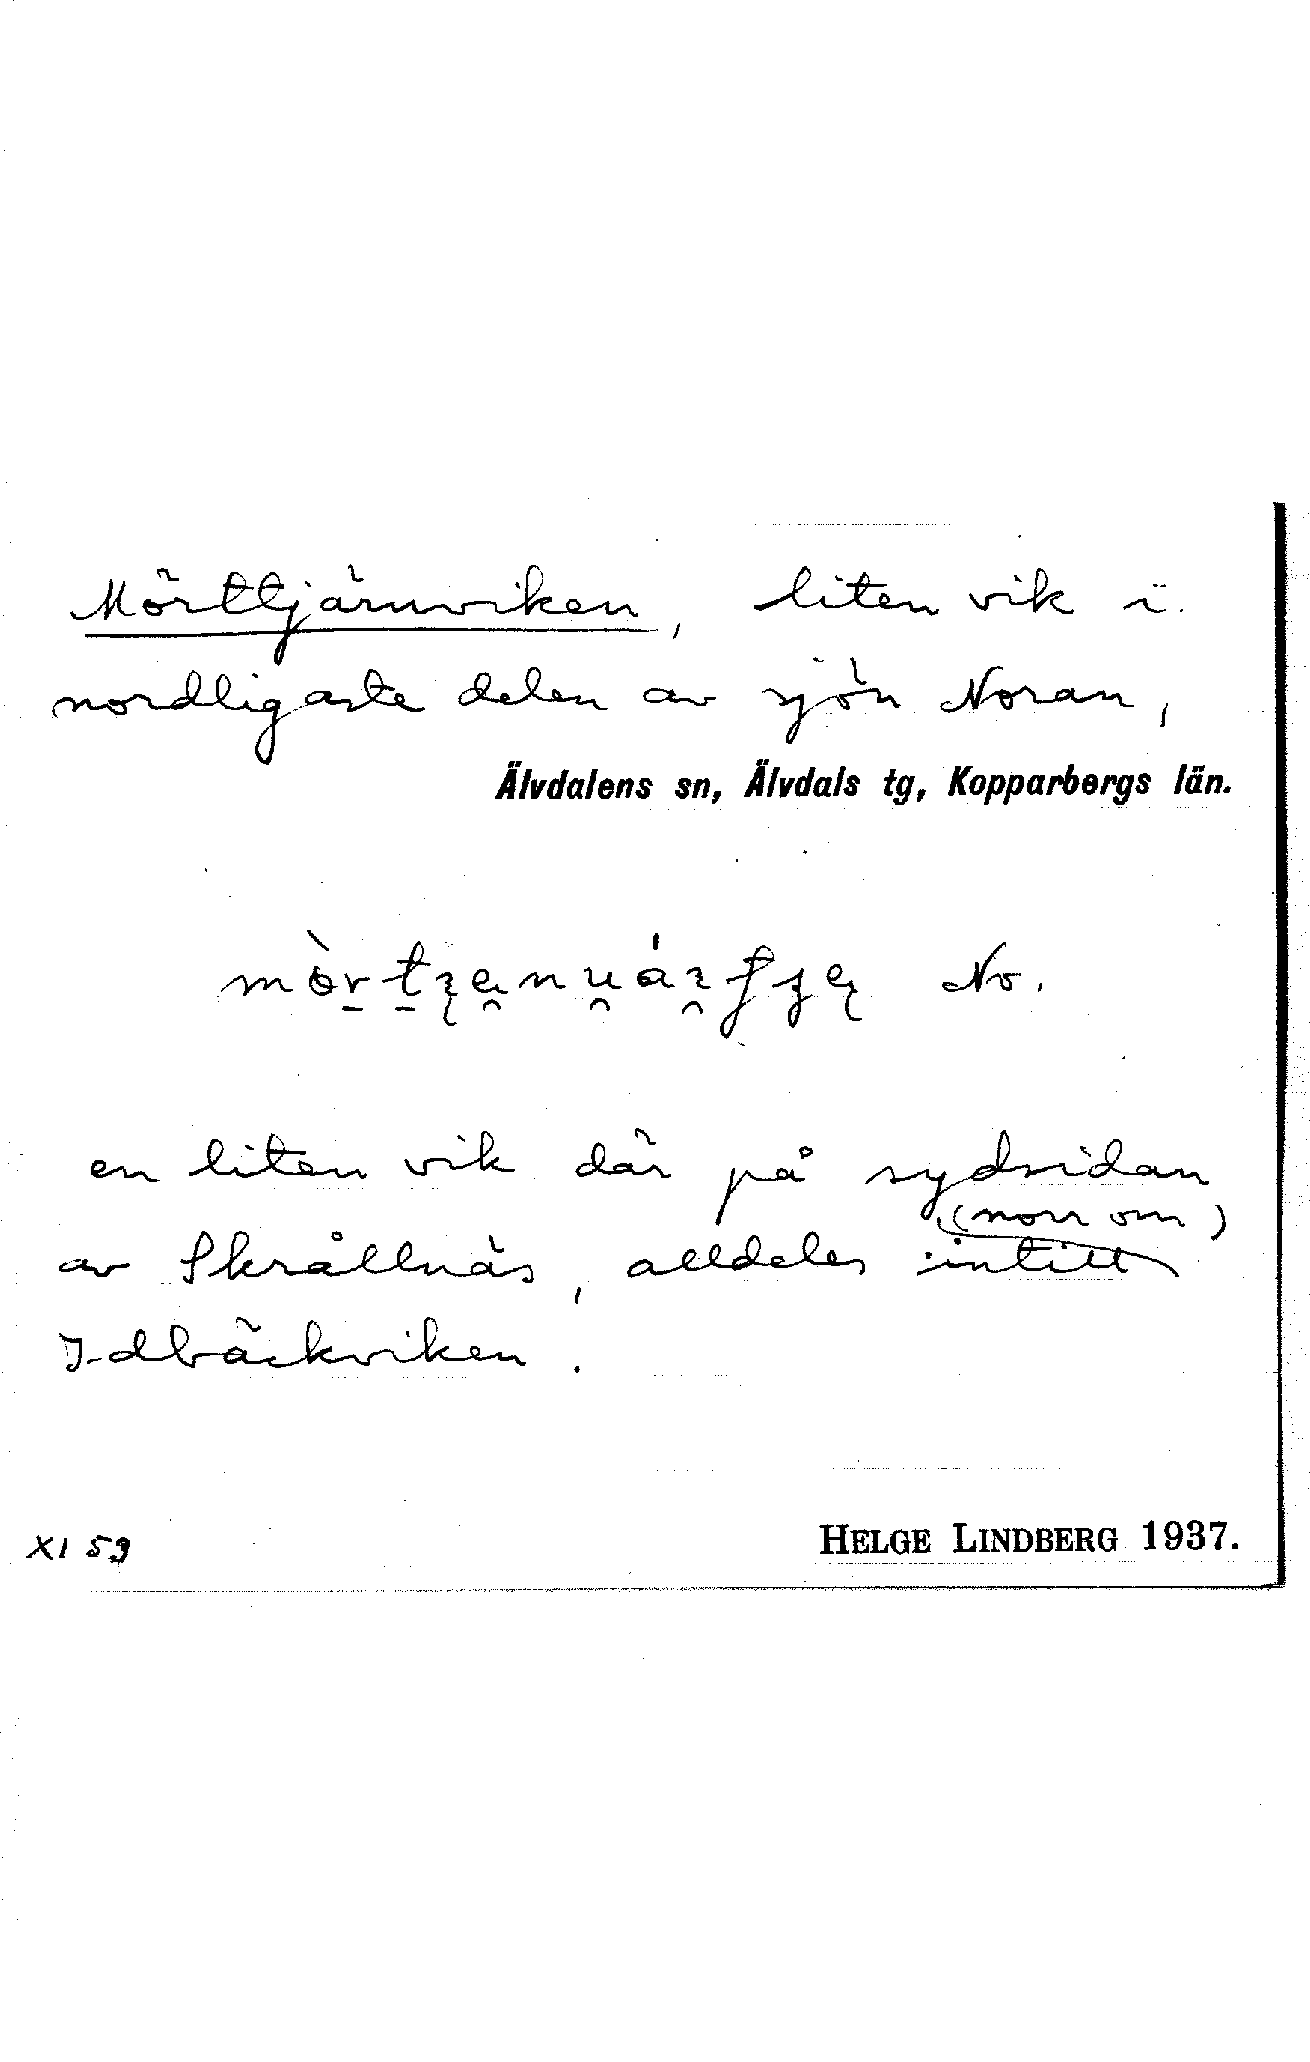 Mörttjärnviken, liten vik i
nordligaste delen av sjön Noran,
Älvdalens sn, Älvdals tg, Kopparbergs län.
No.
en liten vik där på sydsidan
(norr om)
av Skrållnäs, alldeles intill
Idbäckviken.
XI 59
HELGE LINDBERG 1937.